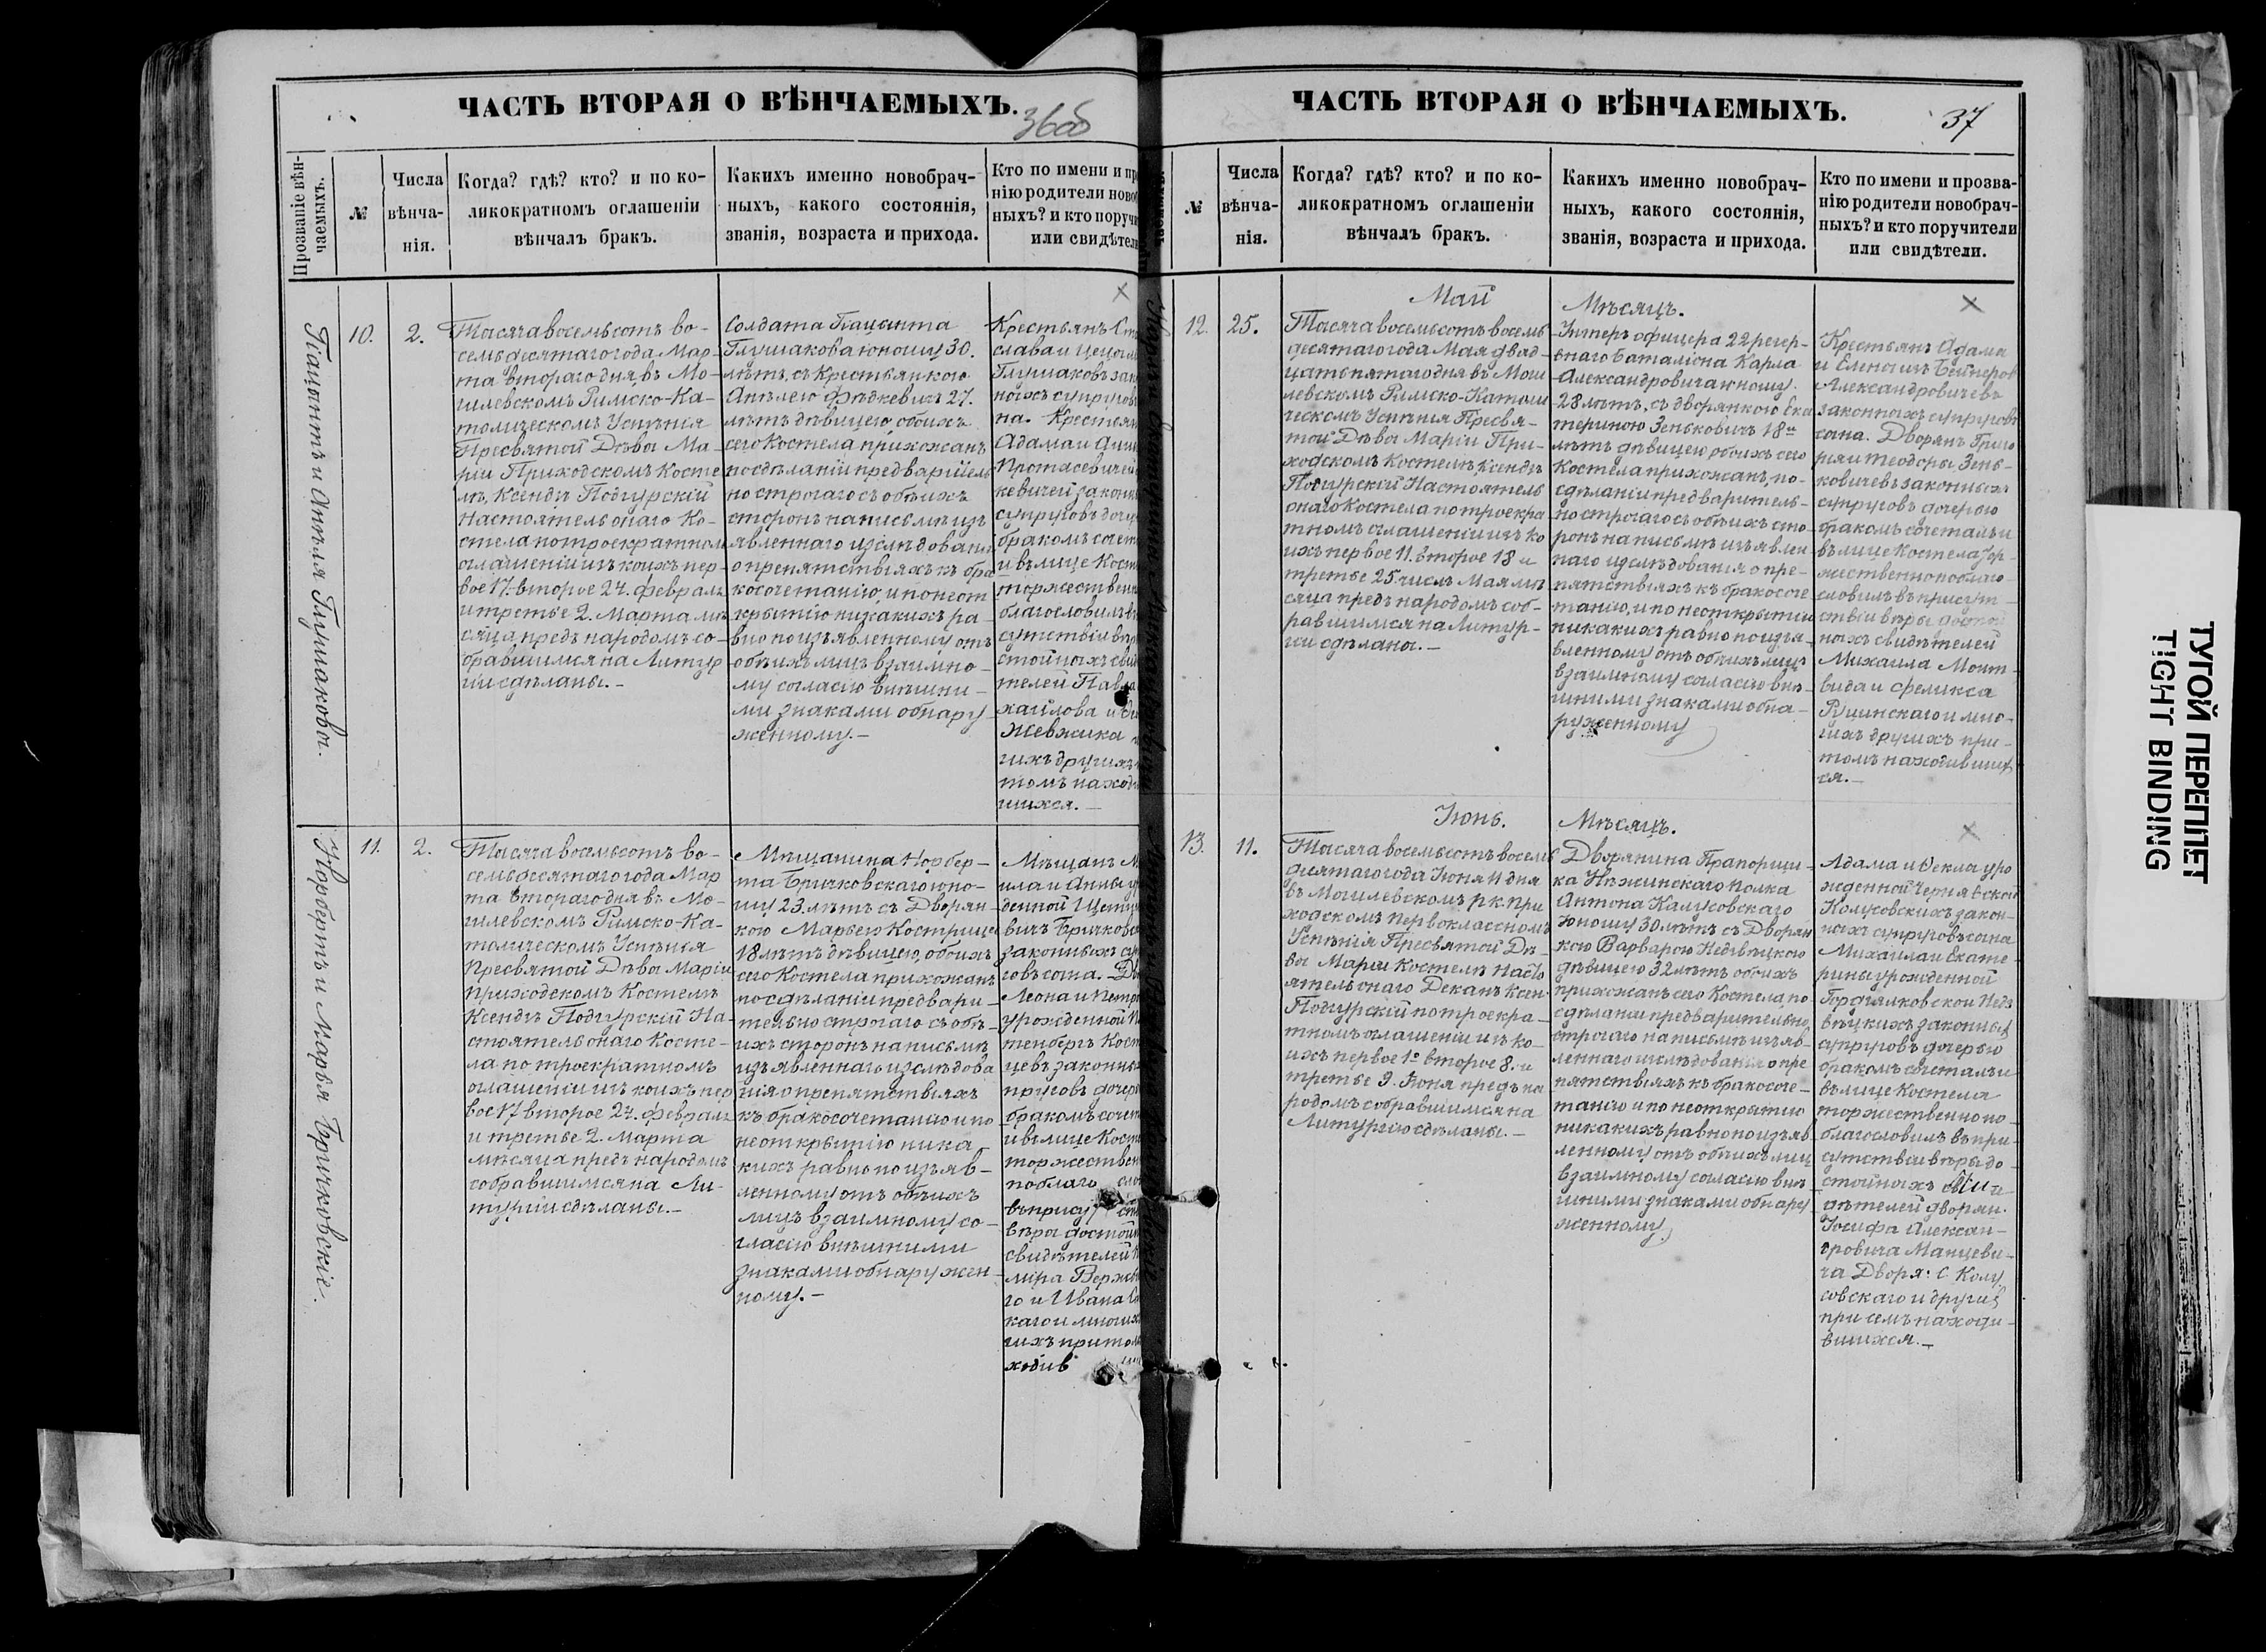 ЧАСТЬ ВТОРАЯ О ВѢНЧАЕМЫХЪ.
36об
Прозваніе вѣн-
чаемыхъ.
№
Числа
вѣнча-
нія.
Когда? гдѣ? кто? и по ко-
ликократномъ оглашеніи
вѣнчалъ бракъ.
Какихъ именно новобрач-
ныхъ, какого состоянія,
званія, возраста и прихода.
Кто по имени и пр
нію родители ново
ныхъ? и кто поручи
или свидѣтели
Гіацынтъ и Анѣля Глушаковы.
10.
2.
Тысяча восемьсотъ во-
семьдесятаго года Мар-
та втораго дня въ Мо-
гилевскомъ Римско-Ка-
толическомъ Успѣнія
Пресвятой Дѣвы Ма-
ріи Приходскомъ Косте
лѣ, Ксендзъ Подгурскій
Настоятель онаго Ко-
стела по троекратномъ
оглашеніи изъ коихъ пер-
вое 17. второе 24. февраля
и третье 2. Марта мѣ-
сяца предъ народомъ со-
бравшимся на Литур
гіи сдѣланы.-
Солдата Гіацынта
Глушакова юношу 30.
лѣтъ, съ Крестьянкою
Анѣлею Фѣдкевичъ 27.
лѣтъ дѣвицею, обоихъ
сего Костела прихожанъ
по сдѣланіи предваритель
но строгаго съ обѣихъ
сторонъ на письмѣ изъ
явленнаго изслѣдованія
о препятствіяхъ къ бра
косочетанію, и по неот
крытію никакихъ ра-
вно по изъявленному отъ
обѣихъ лицъ взаимно-
му согласію внѣшни-
ми знаками обнару-
женному.-
Крестьянъ Ста
слава и Цецыл
Глушаковъ зак
ныхъ супругов
на. Крестьян
Адама и Анн
Протасевичей
кевичей законн
супруговъ доч
бракомъ сочет
и въ лице Кост
торжественн
благословилъ в
сутствіи вѣр
стойныхъ сви
телей Павла
хайлова и
Жевжика
гихъ другихъ
томъ находи
шихся.-
Норбертъ и Марья Бричковскіе.
11.
2.
Тысяча восемьсотъ во-
семьдесятаго года Мар
та втораго дня въ Мо-
гилевскомъ Римско-Ка-
толическомъ Успѣнія
Пресвятой Дѣвы Маріи
Приходскомъ Костелѣ
Ксендзъ Подгурскій На-
стоятель онаго Косте-
ла по троекратномъ
оглашеніи изъ коихъ пер
вое 17 второе 24. февраля
и третье 2. Марта
мѣсяца предъ народомъ
собравшимся на Ли-
тургіи сдѣланы.-
Мѣщанина Норбер-
та Бричковскаго юно-
шу 23. лѣтъ съ Дворян-
кою Марьею Кострице
18 лѣтъ дѣвицею, обоихъ
сего Костела прихожанъ
по сдѣланіи предвари-
тельно строгаго съ обѣ-
ихъ сторонъ на письмѣ
изъявленнаго изслѣдова
нія о препятствіяхъ
къ бракосочетанію и по
неоткрытію ника-
кихъ равно по изъяв-
ленному отъ обѣихъ
лицъ взаимному со-
гласію внѣшними
знаками обнаружен-
ному.-
Мѣщанъ М
ила и Анны у
денной Щепу
вичъ Бричков
законныхъ су
говъ сына. Дв
Леона и Петр
урожденной
тенбергъ Кост
цевъ законны
пруговъ дочер
бракомъ сочет
и въ лице Кост
торжествен
поблаго сло
въ прису ст
вѣры достойн
свидѣтелей К
міра Верже
го и Ивана
каго и многих
гихъ притом
ходив ши
ЧАСТЬ ВТОРАЯ О ВѢНЧАЕМЫХЪ.
37
№
Числа
вѣнча-
нія.
Когда? гдѣ? кто? и по ко-
ликократномъ оглашеніи
вѣнчалъ бракъ.
Какихъ именно новобрач-
ныхъ, какого состоянія,
званія, возраста и прихода.
Кто по имени и прозва-
нію родители новобрач-
ныхъ? и кто поручители
или свидѣтели.
Май Мѣсяцъ.
12.
25.
Тысяча восемьсотъ восемь
десятаго года Мая двад-
цать пятаго дня въ Моги
левскомъ Римско-Католи
ческомъ Успѣнія Пресвя-
той Дѣвы Маріи При-
ходскомъ Костелѣ Ксендзъ
Подгурскій Настоятель
онаго Костела по троекра
тномъ оглашеніи изъ ко
ихъ первое 11. второе 18 и
третье 25 числъ Мая мѣ
сяца предъ народомъ соб-
равшимся на Литур-
гіи сдѣланы.-
Унтеръ офицера 22 резер-
внаго баталіона Карла
Александровича юношу
28 лѣтъ, съ дворянкою Ека
териною Зенькович 18и
лѣтъ дѣвицею обоихъ сего
Костела прихожанъ, по-
сдѣланіи предваритель-
но строгаго съ обѣихъ сто
ронъ на письмѣ изъявлен
наго изслѣдованія о пре-
пятствіяхъ къ бракосоче
танію, и по неоткрытію
никакихъ равно по изъя-
вленному отъ обѣихъ лицъ
взаимному согласію внѣ-
шними знаками обна-
руженному
Крестьянъ Адама
и Елены изъ Бейнеров
Александровичевъ
законныхъ супруговъ
сына. Дворянъ Григо
рія и Теодоры Зень-
ковичевъ законныхъ
супруговъ дочерью
бракомъ сочеталъ и
въ лице Костела тор-
жественно поблаго-
словилъ въ присут-
ствіи вѣры достой
ныхъ свидѣтелей
Михаила Монт-
вида и Феликса
Рушинскаго и мно-
гихъ другихъ при-
томъ находивших
ся.-
Іюнь. Мѣсяцъ.
13.
11.
Тысяча восемьсотъ восемь
десятаго года Іюня 11 дня
въ Могилевскомъ р.к. при
ходскомъ первоклассномъ
Успѣнія Пресвятой Дѣ-
вы Маріи Костелѣ Насто
ятель онаго Деканъ Ксен.
Подгурскій по троекра-
тномъ оглашеніи изъ ко-
ихъ первое 1е второе 8. и
третье 9. Іюня предъ на
родомъ собравшимся на
Литургію сдѣланы.-
Дворянина Прапорщи-
ка Нѣжинскаго Полка
Антона Калусовскаго
юношу 30 лѣтъ съ Дворян
кою Варварою Недзвѣцкою
дѣвицею 32 лѣтъ обоихъ
прихожанъ сего Костела по
сдѣланіи предварительно
строгаго на письмѣ изъяв
леннаго изслѣдованія о пре
пятствіяхъ къ бракосоче-
танію и по неоткрытію
никакихъ равно по изъяв
ленному отъ обѣихъ лиц
взаимному согласію внѣ
шними знаками обнару
женному.
Адама и Фекла уро
жденной Чернявской
Колусовскихъ закон-
ныхъ супруговъ сына
Михаила и Екате-
рины урожденной
Гордзялковской Недз
вѣцкихъ законныхъ
супруговъ дочерью
бракомъ сочеталъ и
въ лице Костела
торжественно по-
благословилъ въ при-
сутствіи вѣры до-
стойныхъ сви-
дѣтелей дворян.
Іосифа Алексан-
дровича Манцеви-
ча Дворя: С. Колу
совскаго и другихъ
при семъ находи-
вшихся.-
ТУГОЙ ПЕРЕПЛЕТ
TIGHT BINDING